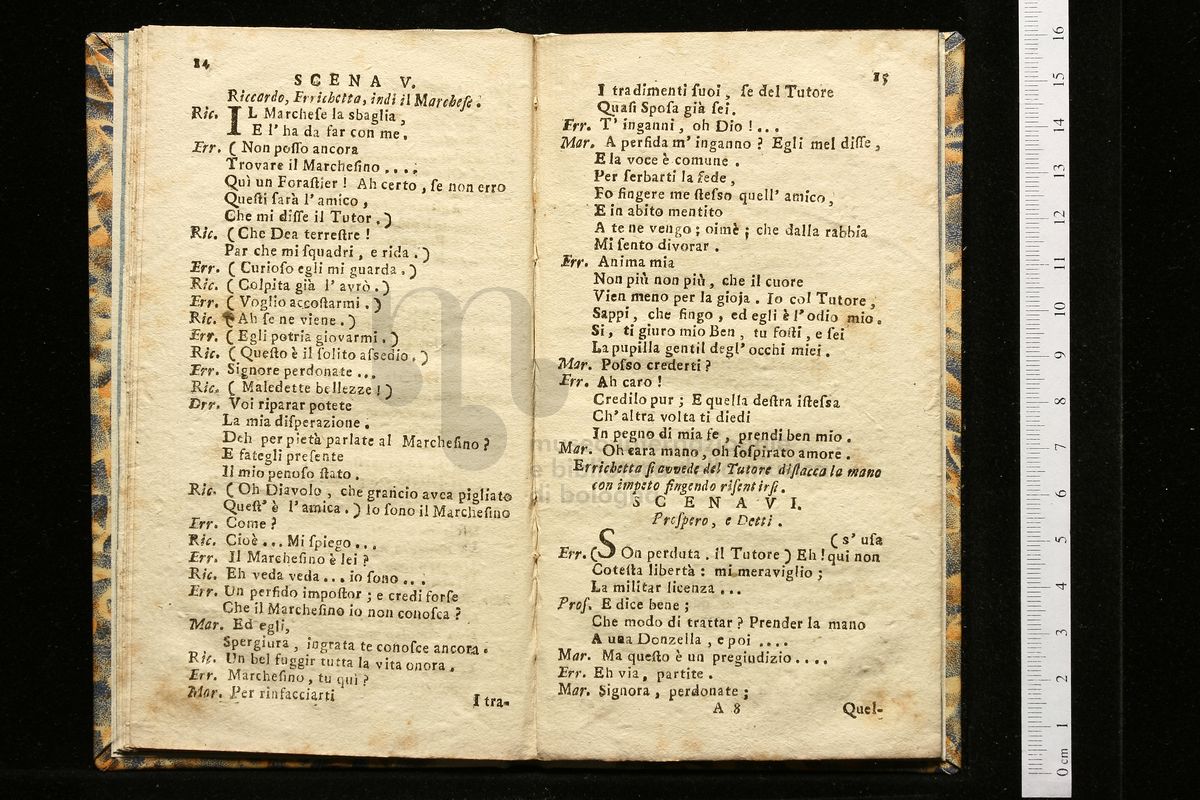 14
SCENA V.
Riccardo, Errichetta, indi il Marchese.
Ric. IL Marchese la sbaglia,
E l' ha da far con me.
Err. ( Non posso ancora
Trovare il Marchesino ....
Quì un Forastier! Ah certo, se non erro
Questi sarà l' amico,
Che mi disse il Tutor.)
Ric. (Che Dea terrestre!
Par che mi squadri, e rida.)
Err. ( Curioso egli mi guarda.)
Ric. ( Colpita già l' avrò.)
Err. ( Voglio accostarmi.)
Ric. ( Ah se ne viene.)
Err. ( Egli potria giovarmi.)
Ric. ( Questo è il solito assedio.)
Err. Signore perdonate ...
Ric. ( Maledette bellezze!)
Drr. Voi riparar potete
La mia disperazione.
Deh per pietà parlate al Marchesino?
E fategli presente
Il mio penoso stato.
Ric. ( Oh Diavolo, che grancio avea pigliato
Quest' è l' amica.) Io sono il Marchesino
Err. Come?
Ric. Cioè ... Mi spiego ...
Err. Il Marchesino è lei?
Ric. Eh veda veda ... io sono ...
Err. Un perfido impostor; e credi forse
Che il Marchesino io non conosca?
Mar. Ed egli,
Spergiura, ingrata te conosce ancora.
Ric. Un bel fuggir tutta la vita onora.
Err. Marchesino, tu qui?
Mar. Per rinfacciarti
I tra-
15
I tradimenti suoi, se del Tutore
Quasi Sposa già sei.
Err. T' inganni, oh Dio!...
Mar. A perfida m' inganno? Egli mel disse,
E la voce è comune.
Per serbarti la fede,
Fo fingere me stesso quell' amico,
E in abito mentito
A te ne vengo; oimè; che dalla rabbia
Mi sento divorar.
Err. Anima mia
Non più non più, che il cuore
Vien meno per la gioja. Io col Tutore,
Sappi, che fingo, ed egli è l' odio mio.
Si, ti giuro mio Ben, tu fosti, e sei
La pupilla gentil degl' occhi miei.
Mar. Posso crederti?
Err. Ah caro!
Credilo pur; E quella destra istessa
Ch' altra volta ti diedi
In pegno di mia fe, prendi ben mio.
Mar. Oh cara mano, oh sospirato amore.
Errichetta si avvede del Tutore distacca la mano
con impeto fingendo risentirsi.
SCENA VI.
Prospero, e Detti.
( s' usa
Err. (SOn perduta. il Tutore) Eh! qui non
Cotesta libertà: mi meraviglio;
La militar licenza ...
Pros. E dice bene;
Che modo di trattar? Prender la mano
A una Donzella, e poi ....
Mar. Ma questo è un pregiudizio ....
Err. Eh via, partite.
Mar. Signora, perdonate;
A 8
Quel-
museo internazionale
e bi
di bologna
0 cm 1 2 3 4 5 6 7 8 9 10 11 12 13 14 15 16